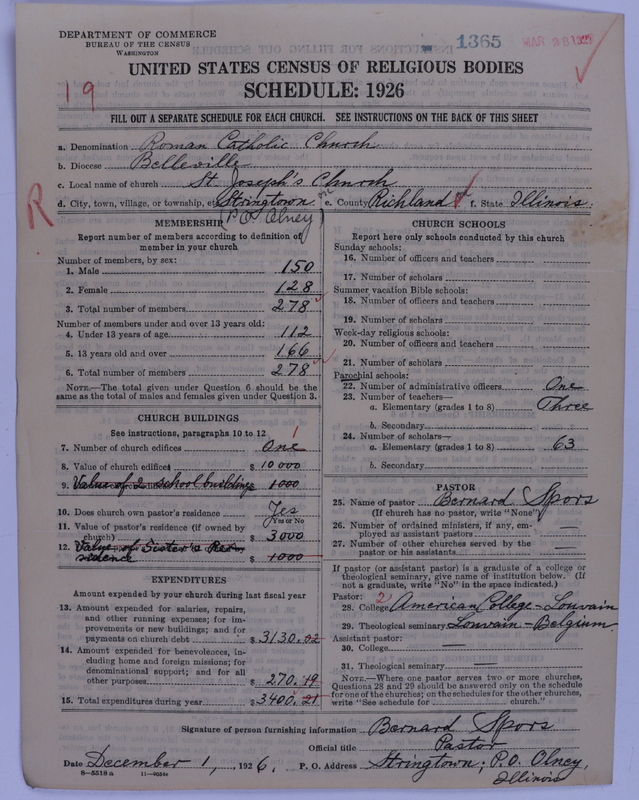 DEPARTMENT OF COMMERCE
BUREAU OF THE CENSUS
WASHINGTON
1365
MAR 28 1927
UNITED STATES CENSUS OF RELIGIOUS BODIES
SCHEDULE: 1926
19
FILL OUT A SEPARATE SCHEDULE FOR EACH CHURCH. SEE INSTRUCTIONS ON THE BACK OF THIS SHEET
a. Denomination Roman Catholic Church
b. Diocese Belleville
c. Local name of church St. Joseph's Church
d. City, town, village, or township, etc. Stringtown e. County Richland f. State Illinois.
(P.O. Olney)
R
MEMBERSHIP
Report number of members according to definition of
member in your church
Number of members, by sex:
1. Male 150
2. Female 128
3. Total number of members 278
Number of members under and over 13 years old:
4. Under 13 years of age 112
5. 13 years old and over 166
6. Total number of members 278
NOTE.—The total given under Question 6 should be the
same as the total of males and females given under Question 3.
CHURCH BUILDINGS
See instructions, paragraphs 10 to 12
1
7. Number of church edifices One
8. Value of church edifices $ 10000
9. Value of 2 school buildings 1000
10. Does church own pastor's residence Yes
(Yes or No)
11. Value of pastor's residence (if owned by
church) $ 3000
12. Value of Sister's Res-
idence $ 1000
EXPENDITURES
Amount expended by your church during last fiscal year
13. Amount expended for salaries, repairs,
and other running expenses; for im-
provements or new buildings; and for
payments on church debt $ 3130.02
14. Amount expended for benevolences, in-
cluding home and foreign missions; for
denominational support; and for all
other purposes $ 270.19
15. Total expenditures during year $ 3400.21
CHURCH SCHOOLS
Report here only schools conducted by this church
Sunday schools:
16. Number of officers and teachers
17. Number of scholars
Summer vacation Bible schools:
18. Number of officers and teachers
19. Number of scholars
Week-day religious schools:
20. Number of officers and teachers
21. Number of scholars
Parochial schools:
22. Number of administrative officers One
23. Number of teachers—
a. Elementary (grades 1 to 8) Three
b. Secondary
24. Number of scholars—
a. Elementary (grades 1 to 8) 63
b. Secondary
PASTOR
25. Name of pastor Bernard Spors
(If church has no pastor, write "None")
26. Number of ordained ministers, if any, em-
ployed as assistant pastors —
27. Number of other churches served by the
pastor or his assistants —
If pastor (or assistant pastor) is a graduate of a college or
theological seminary, give name of institution below. (If
not a graduate, write "No" in the space indicated.)
Pastor: 2
28. College American College - Louvain
29. Theological seminary Louvain - Belgium
Assistant pastor:
30. College —
31. Theological seminary —
NOTE.—Where one pastor serves two or more churches,
Questions 28 and 29 should be answered only on the schedule
for one of the churches; on the schedules for the other churches,
write "See schedule for church."
Signature of person furnishing information Bernard Spors
Official title Pastor
Date December 1, 1926. P. O. Address Stringtown; P.O. Olney,
Illinois
8—5518a 11—9054